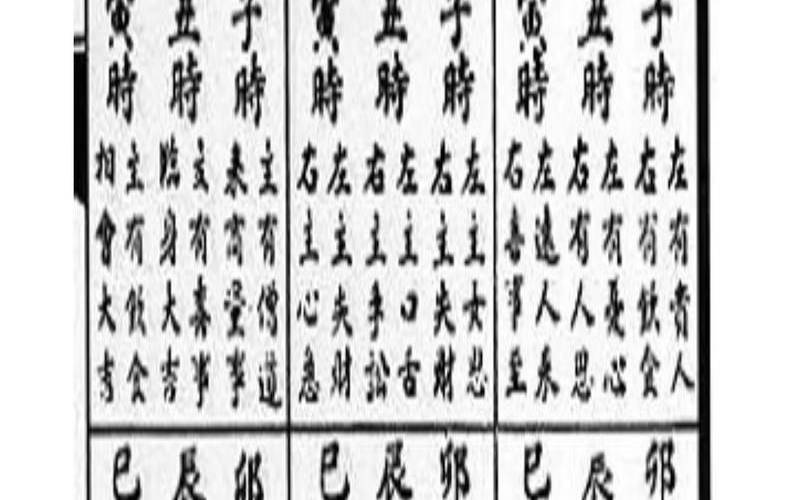 子時
左有貴人
右有飲食
丑時
左有憂心
右有人思
寅時
左遠人來
右喜事至
子時
左主女思
右主失財
丑時
左主口舌
右主爭訟
寅時
左主失財
右主心急
子時
主有僧道
來商量事
丑時
主有喜事
臨身大吉
寅時
主有飲食
相會大吉
卯
辰
巳
卯
辰
巳
卯
辰
巳